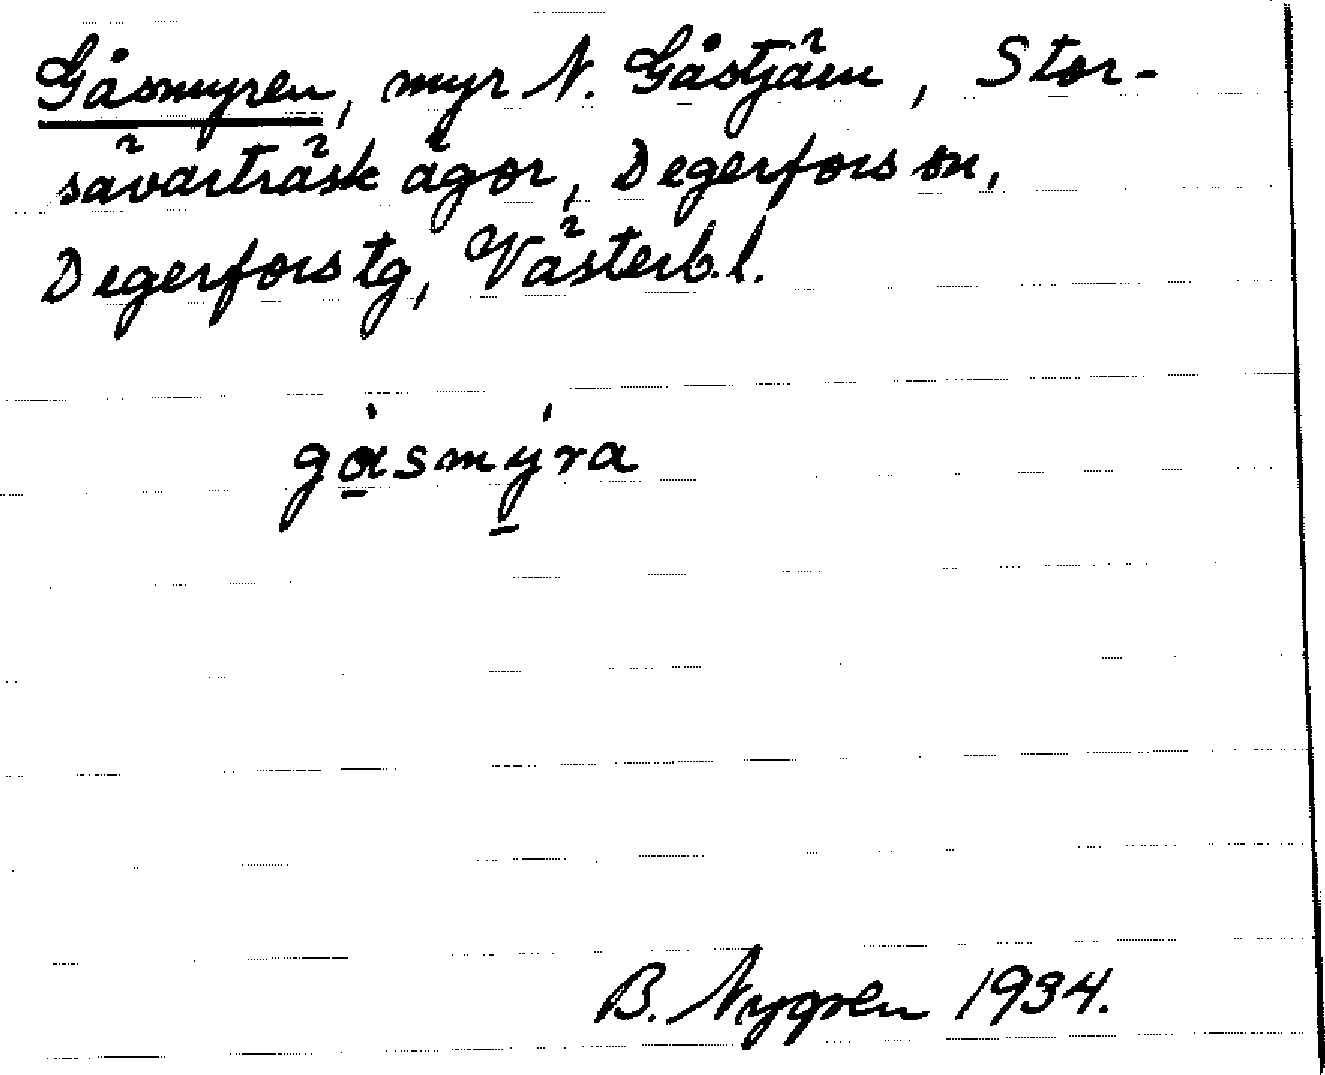 Gåsmyren, myr N. Gåstjärn, Stor-
sävarträsk ägor, Degerfors sn,
Degerfors tg, Västerb. l.
gåsmýra
B. Nygren 1934.